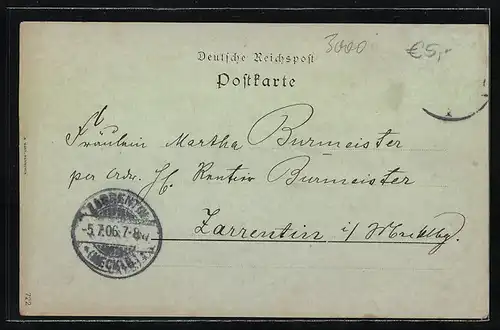 3000
€5,-
Deutsche Reichspost
Postkarte
Fräulein Martha Burmeister
per Adr. H. Rentier Burmeister
Zarrentin i/ Mecklbg.
ZARRENTIN
-5.7.06.7-8N.
(MECKLB.)
722